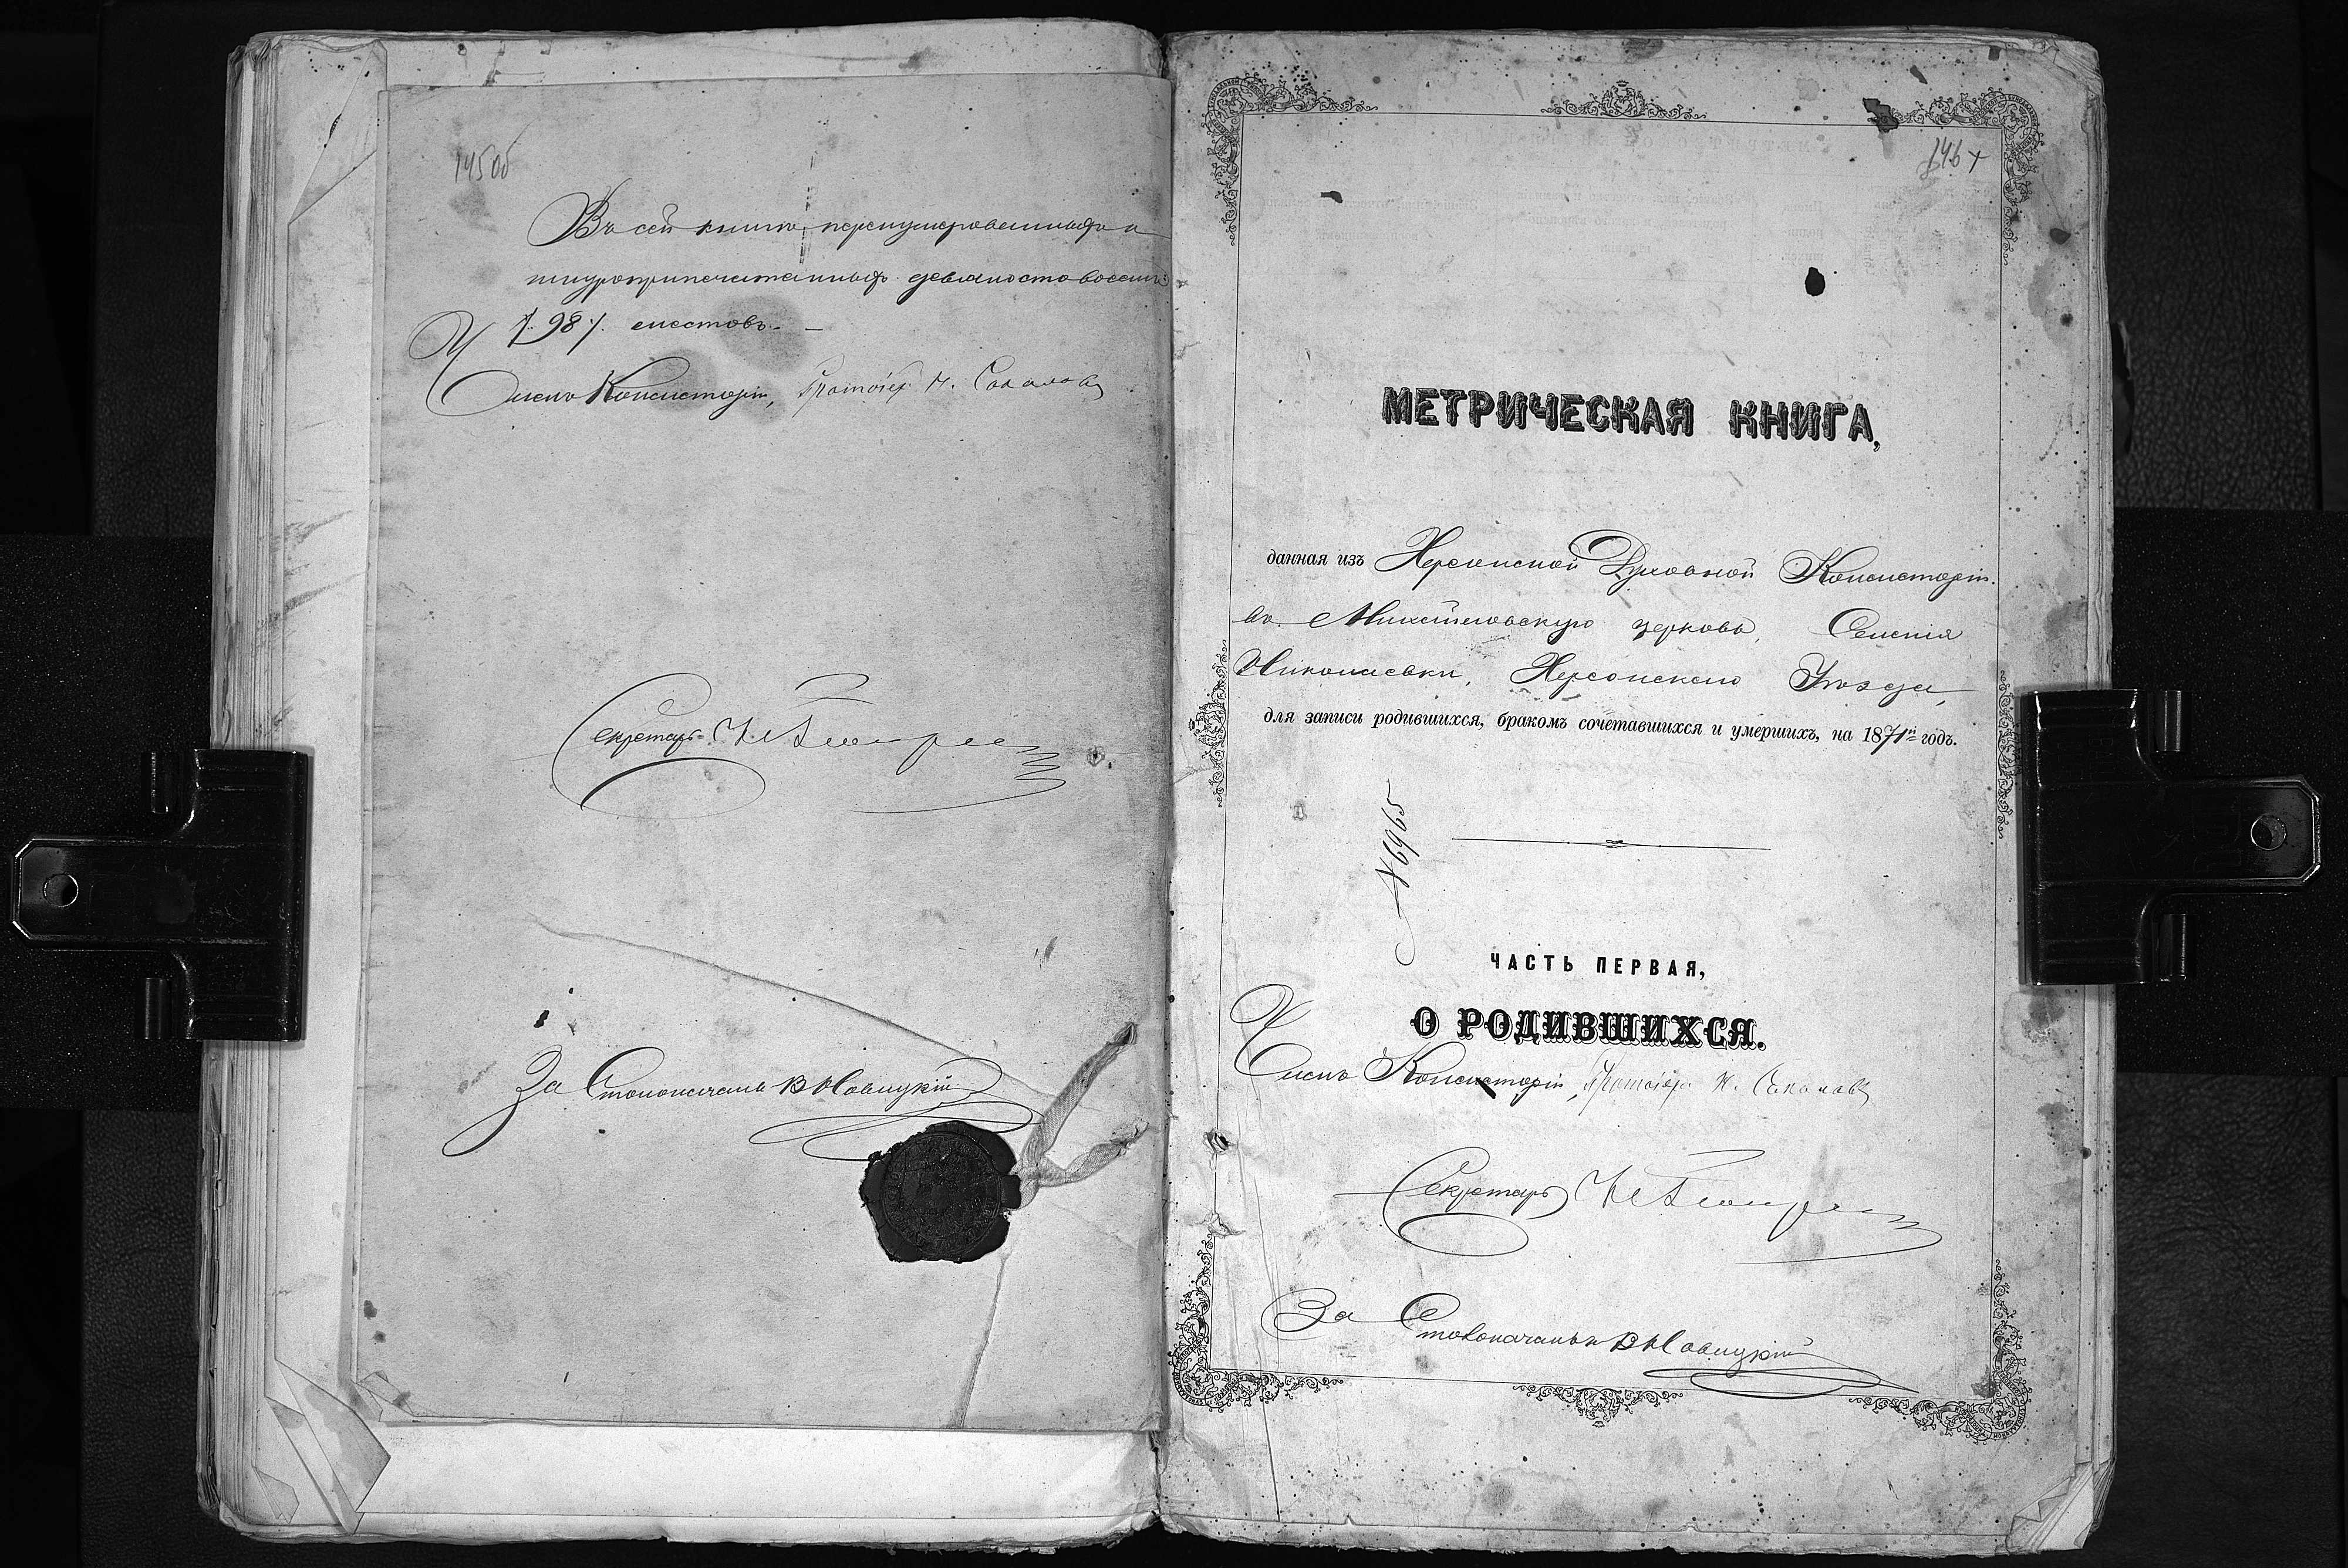 145об
Въ сей книгѣ перенумерованныхъ и
шнуроприпечатанныхъ девяносто восемь
/:98:/. листовъ. –
Членъ Консисторіи, Протоіер. Н. Соколовъ
Секретарь
За Столоначальн. В Новицкій
146 +
МЕТРИЧЕСКАЯ КНИГА,
данная изъ Херсонской Духовной Консисторіи.
въ Михайловскую церковь, Селенія
Николаевки, Херсонскаго Уѣзда,
для записи родившихся, бракомъ сочетавшихся и умершихъ, на 1871й годъ.
№ 6965
ЧАСТЬ ПЕРВАЯ,
О РОДИВШИХСЯ.
Членъ Консисторіи, Протоіер. Н. Соколовъ
Секретарь
За Столоначальн. В Новицкій